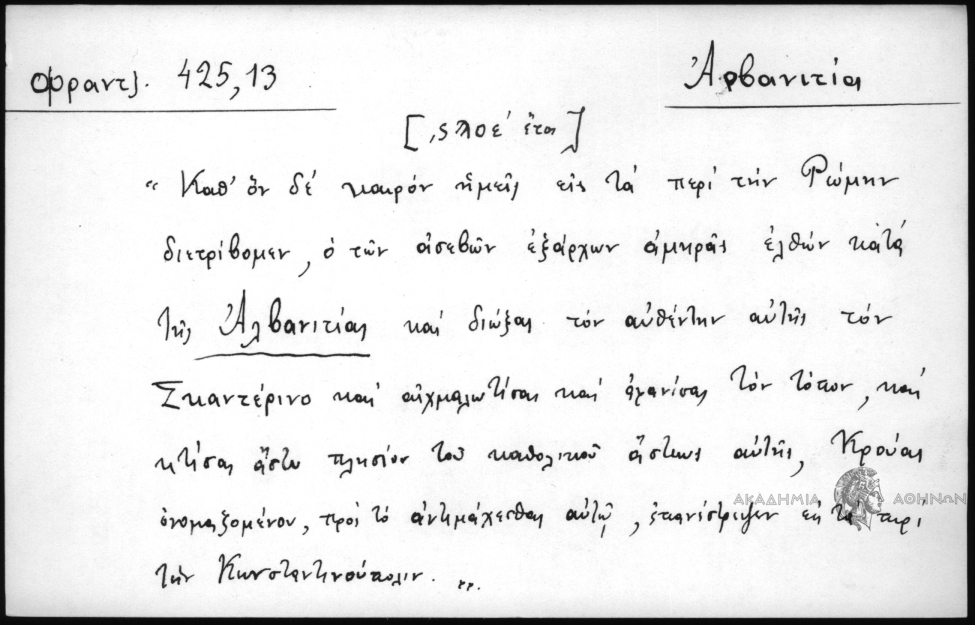 Φραντζ. 425,13
Ἀρβανιτία
[͵ςϡοε' ἔτος]
“ Καθ' ὅν δέ καιρόν ἡμεῖς εἰς τά περί τήν Ῥώμην
διετρίβομεν, ὁ τῶν ἀσεβῶν ἐξάρχων ἀμηρᾶς ἐλθών κατά
τῆς Ἀλβανιτίας καί διώξας τόν αὐθέντην αὐτῆς τόν
Σκαντέρινο καί αἰχμαλωτίσας καί ἀφανίσας τόν τόπον, καί
κτίσας ἄστυ πλησίον τοῦ καθολικοῦ ἄστεως αὐτῆς, Κρούας
ὀνομαζομένου, πρός τό ἀντιμάχεσθαι αὐτῷ, ἐπανέστρεψεν εἰς τά περί
τήν Κωνσταντινούπολιν. „
ΑΚΑΔΗΜΙΑ ΑΘΗΝΩΝ